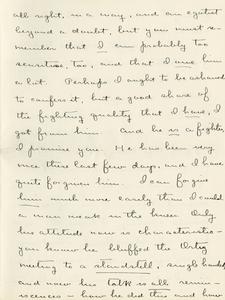 all right, in a way, and an egotist
beyond a doubt, but you must re-
member that I am probably too
sensitive, too, and that I owe him
a lot. Perhaps I ought to be ashamed
to confess it, but a good share of
the fighting quality that I have, I
got from him. And he is a fighter,
I promise you. He has been very
nice these last few days, and I have
quite forgiven him. I can forgive
him much more easily than I could
a man weak in the knees. Only
his attitude now so characteristic—
you know he bluffed the
meeting to a standstill, single handed
and now his talk is all remin-
iscences — how he did this and how